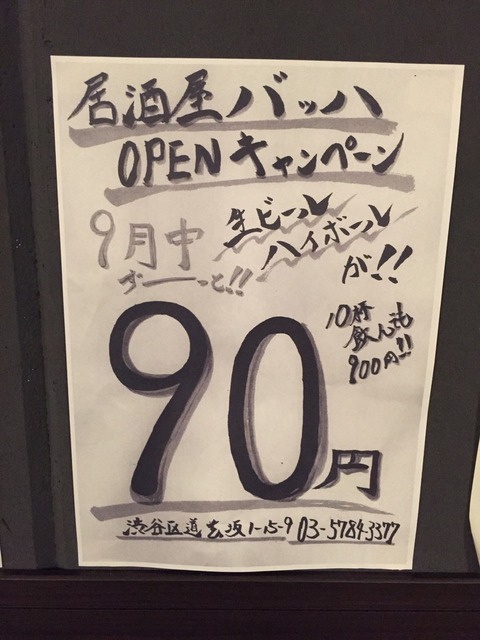 居酒屋バッハ
OPENキャンペーン
9月中
ずーーっと!!
生ビール
ハイボール
が!!
10杯
飲んでも
900円!!
90円
渋谷区道玄坂1-15-9 03-5784-3377